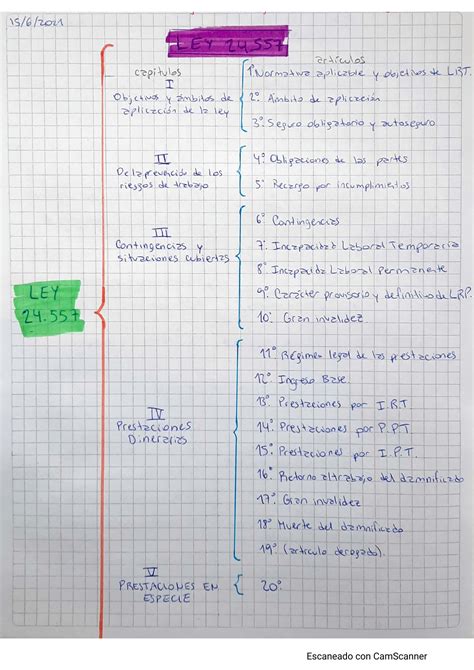 15/6/2021
LEY 24.557
capitulos
artículos
I
Objetivos y ámbitos de
aplicación de la ley
1. Normativa aplicable y objetivos de LRT.
2º Ámbito de aplicación
3º Seguro obligatorio y autoseguro
II
De la prevención de los
riesgos de trabajo
4º Obligaciones de las partes
5º Recargo por incumplimientos
III
Contingencias y
situaciones cubiertas
6º Contingencias
7º Incapacidad Laboral Temporaria
8º Incapacidad Laboral Permanente
9º Carácter provisorio y definitivo de LRP.
10º Gran invalidez
LEY
24.557
IV
Prestaciones
Dinerarias
11º Régimen legal de las prestaciones
12º Ingreso Base
13º Prestaciones por I.R.T
14º Prestaciones por P.P.T.
15º Prestaciones por I.P.T.
16º Retorno al trabajo del damnificado
17º Gran invalidez
18º Muerte del damnificado
19º (artículo derogado).
V
PRESTACIONES EN
ESPECIE
20º
Escaneado con CamScanner